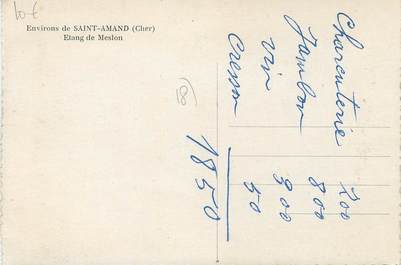 10€
Environs de SAINT-AMAND (Cher)
Etang de Meslon
(18)
Charcuterie 700
Jambon 800
Vin 300
Cresson 50
1850